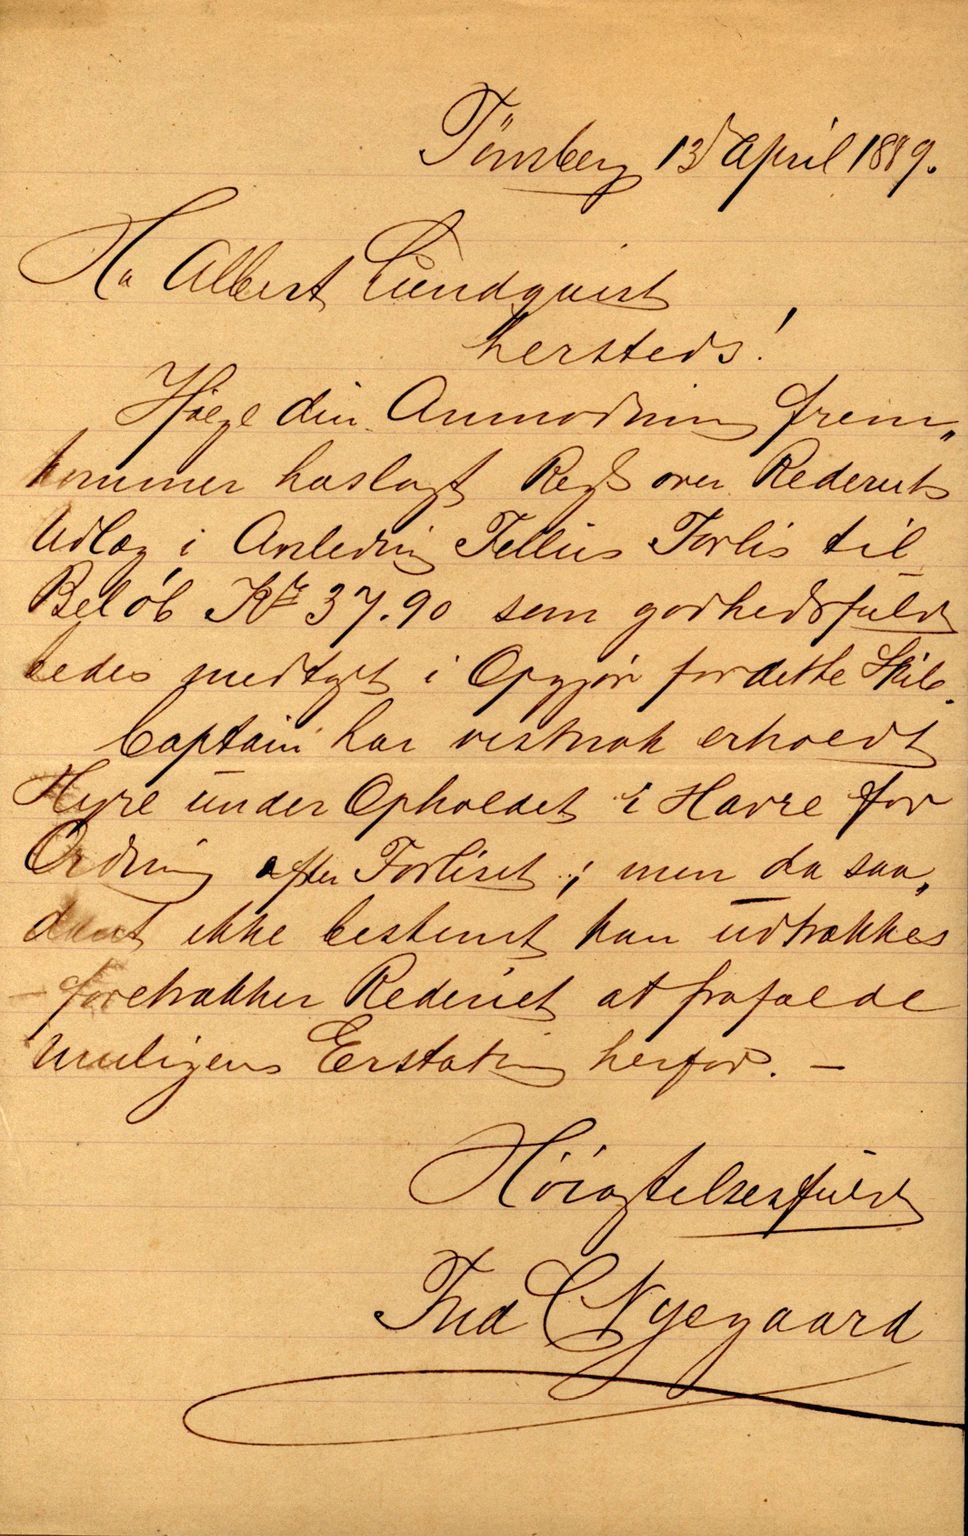 Tönsberg 13d April 1889.
Hr Albert Lundqvist
hersteds!
Ifølge din Anmodning frem„
kommer hoslagt Regs over Rederiets
Udlæg i Anledning Tellus Forlis til
Beløb Kr 37.90 som godhedsfuldt
bedes medtaget i Opgjør for dette Skib.
Captain har vistnok erholdt
Hyre under Opholdet i Havre for
Ordning efter Forliset; men da saa„
dant ikke bestemt kan udtrækkes
– foretrækker Rederiet at frafalde
muligens Erstatning herfor. —
Høiagtelsesfuldt
Fred C Nyegaard